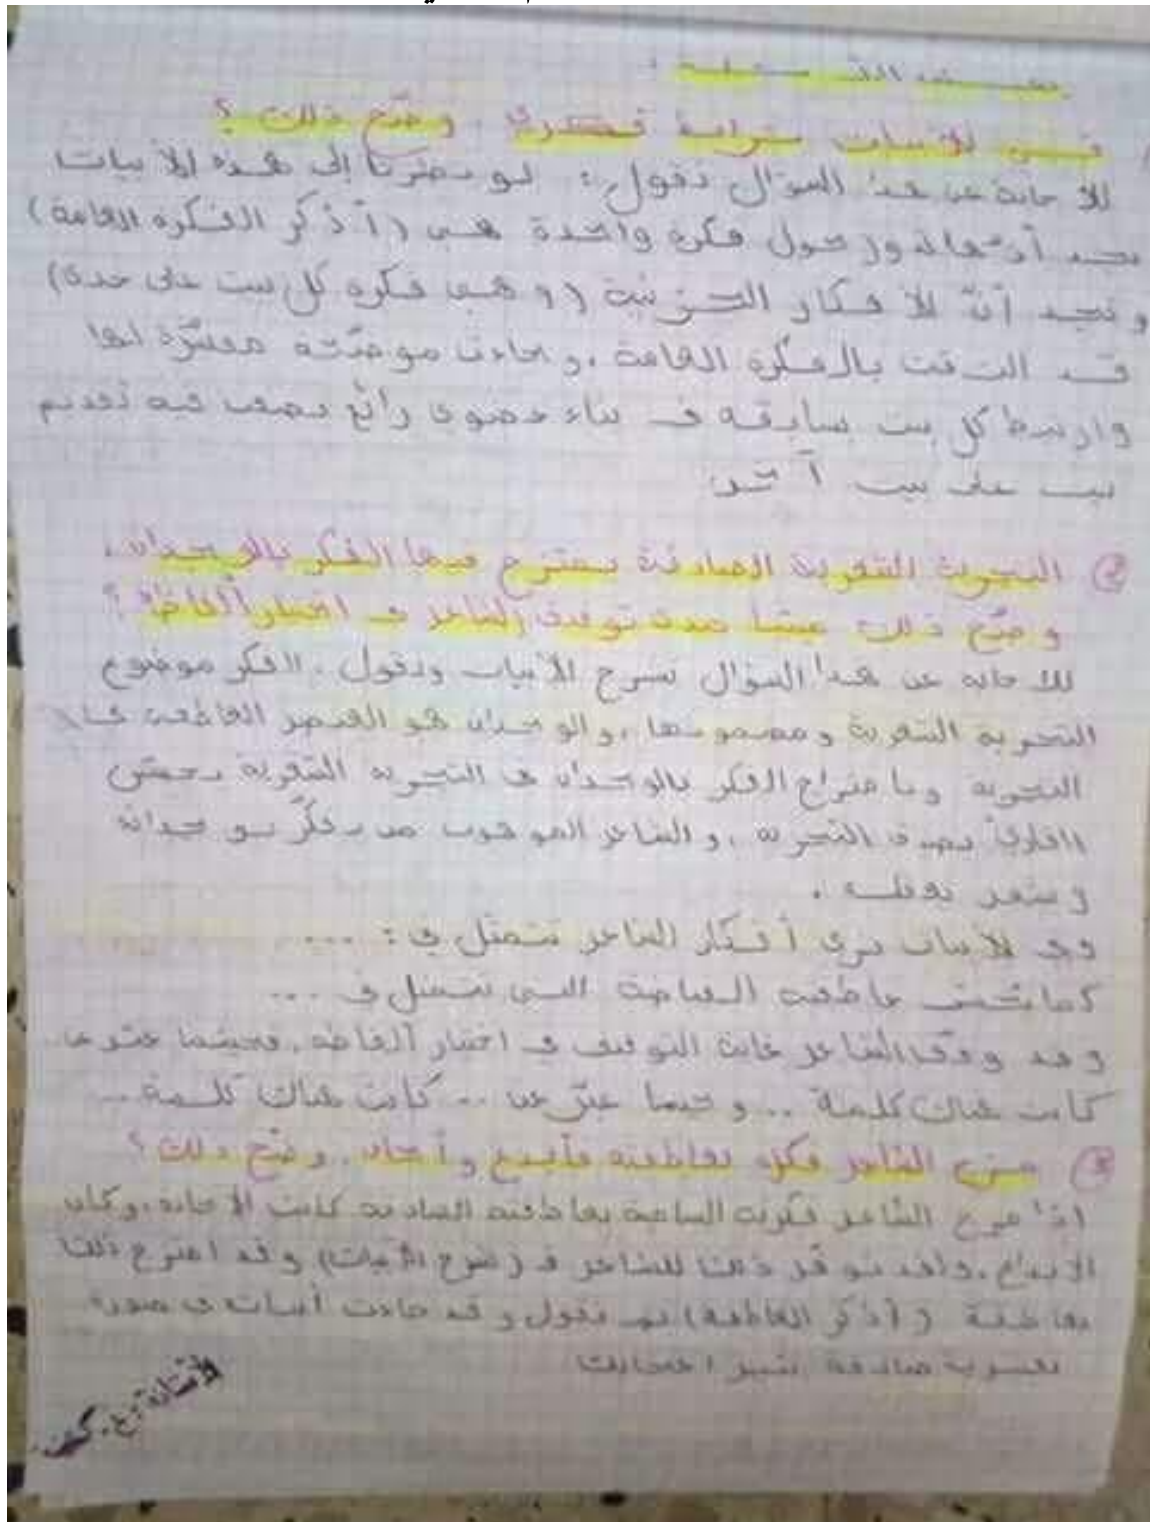 بعض الأسئلة :
في الأبيات ترابط فكري . وضّح ذلك ؟
للإجابة عن هذا السؤال نقول : لو نظرنا إلى هذه الأبيات
نجد أنها تدور حول فكرة واحدة هي (أذكر الفكرة العامة)
ونجد أنّ الأفكار الجزئية (وهي فكرة كل بيت على حدى)
قد التقت بالفكرة العامة ، وجاءت موضّحة مفسّرة لها
وارتبط كل بيت بسابقه في بناء عضوي رائع يصعب فيه تقديم
بيت على بيت آخر
② التجربة الشعرية الصادقة يمتزج فيها الفكر بالوجدان .
وضّح ذلك مبينا مدى توفيق الشاعر في اختيار ألفاظه ؟
للإجابة عن هذا السؤال نشرح الأبيات ونقول . الفكر موضوع
التجربة الشعرية ومضمونها ، والوجدان هو العنصر العاطفي في
التجربة وبامتزاج الفكر بالوجدان في التجربة الشعرية يحس
القارئ بصدق التجربة ، والشاعر الموهوب من يفكّر بوجدانه
ويشعر بعقله .
وفي الأبيات نرى أفكار الشاعر تتمثل في : ...
كما نحس عاطفته الفياضة التي تتمثل في ...
وقد وفّق الشاعر غاية التوفيق في اختيار ألفاظه ، فحينما عبّر عن
كانت هناك كلمة .. وحينما عبّر عن .. كانت هناك كلمة ..
③ مزج الشاعر فكره بعاطفته فأبدع وأجاد . وضّح ذلك ؟
إذا مزج الشاعر فكرته السامية بعاطفته الصادقة كانت الإجادة ، وكان
الإبداع ، ولقد توفّر ذلك للشاعر في (شرح الأبيات) وقد امتزج ذلك
بعاطفة (أذكر العاطفة) ثم نقول وقد جاءت أبياته في صورة
شعرية صادقة تثير إعجابنا
الأستاذة :